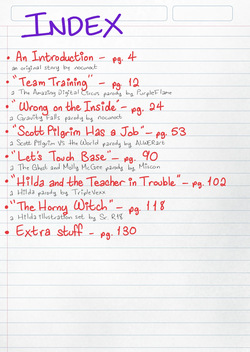 INDEX
• An Introduction – pg. 4
an original story by nocunoct
• "Team Training" – pg. 12
a The Amazing Digital Circus parody by PurpleFlame
• "Wrong on the Inside" – pg. 24
a Gravity Falls parody by nocunoct
• "Scott Pilgrim Has a Job" – pg. 53
a Scott Pilgrim VS the World parody by
• "Let's Touch Base" – pg. 90
a The Ghost and Molly McGee parody by
• "Hilda and the Teacher in Trouble" – pg. 102
a Hilda parody by TripleVexx
• "The Horny Witch" – pg. 118
a Hilda illustration set by Sr. R18
• Extra stuff – pg. 130